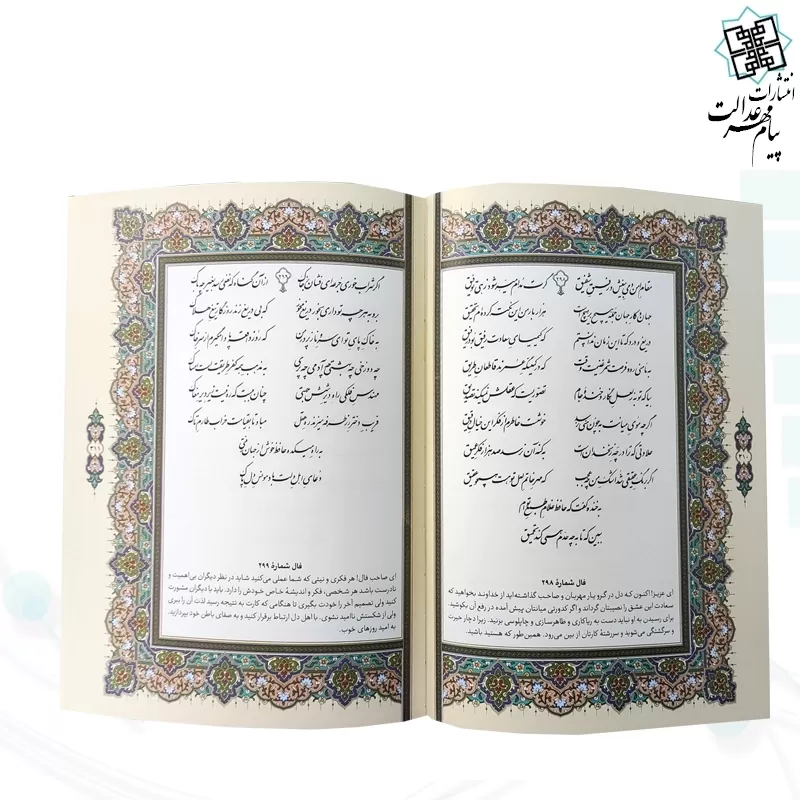 انتشارات
پیام مهر عدالت
مقام امن و می بی‌غش و رفیق شفیق
گرت مدام میسر شود زهی توفیق
جهان و کار جهان جمله هیچ بر هیچست
هزار بار من این نکته کرده‌ام تحقیق
دریغ و درد که تا این زمان ندانستم
که کیمیای سعادت رفیق بود رفیق
به مأمنی رو و فرصت شمر غنیمت وقت
که در کمینگه عمرند قاطعان طریق
بیا که توبه ز لعل نگار و خنده جام
تصوریست که عقلش نمیکند تصدیق
اگرچه موی میانت به چون منی نرسد
خوشست خاطرم از فکر این خیال دقیق
حلاوتی که ترا در چه زنخدان است
به کنه آن نرسد صد هزار فکر عمیق
اگر به رنگ عقیقی شد اشک من چه عجب
که مهر خاتم لعل تو هست همچو عقیق
به خنده گفت که حافظ غلام طبع توام
ببین که تا به چه حدم همی کند تحمیق
فال شمارهٔ ۲۹۸
ای عزیز! اکنون که دل در گرو یار مهربان و صاحب گذاشته‌اید از خداوند بخواهید که
سعادت این عشق را نصیبتان گرداند و اگر کدورتی میانتان پیش آمده در رفع آن بکوشید.
برای رسیدن به او نباید دست به ریاکاری و ظاهرسازی و چاپلوسی بزنید. زیرا دچار حیرت
و سرگشتگی می‌شوید و سررشتهٔ کارتان از بین می‌رود. همین‌طور که هستید باشید.
۲۹۹
اگر شراب خوری جرعه‌ای فشان بر خاک
از آن گناه که نفعی رسد به غیر چه باک
برو به هر چه تو داری بخور دریغ مخور
که بی دریغ زند روزگار تیغ هلاک
به خاک پای تو ای سرو نازپرور من
که روز واقعه پا وامگیرم از سر خاک
چه دوزخی چه بهشتی چه آدمی چه پری
به مذهب همه کفر طریقت است امساک
مهندس فلکی راه دیر شش جهتی
چنان ببست که ره نیست زیر دیر مغاک
فریب دختر رز طرفه میزند ره عقل
مباد تا به قیامت خراب طارم تاک
به راه میکده حافظ خوش از جهان رفتی
دعای اهل دلت باد مونس دل پاک
فال شمارهٔ ۲۹۹
ای صاحب فال! هر فکری و نیتی که شما عملی می‌کنید شاید در نظر دیگران بی‌اهمیت و
نادرست باشد هر شخصی، فکر و اندیشهٔ خاص خودش را دارد. باید با دیگران مشورت
کنید ولی تصمیم آخر را خودت بگیری تا هنگامی که کارت به نتیجه رسید لذت آن را ببری
ولی از شکستش ناامید نشوی. با اهل دل ارتباط برقرار کنید و به صفای باطن خود بپردازید.
به امید روزهای خوب.